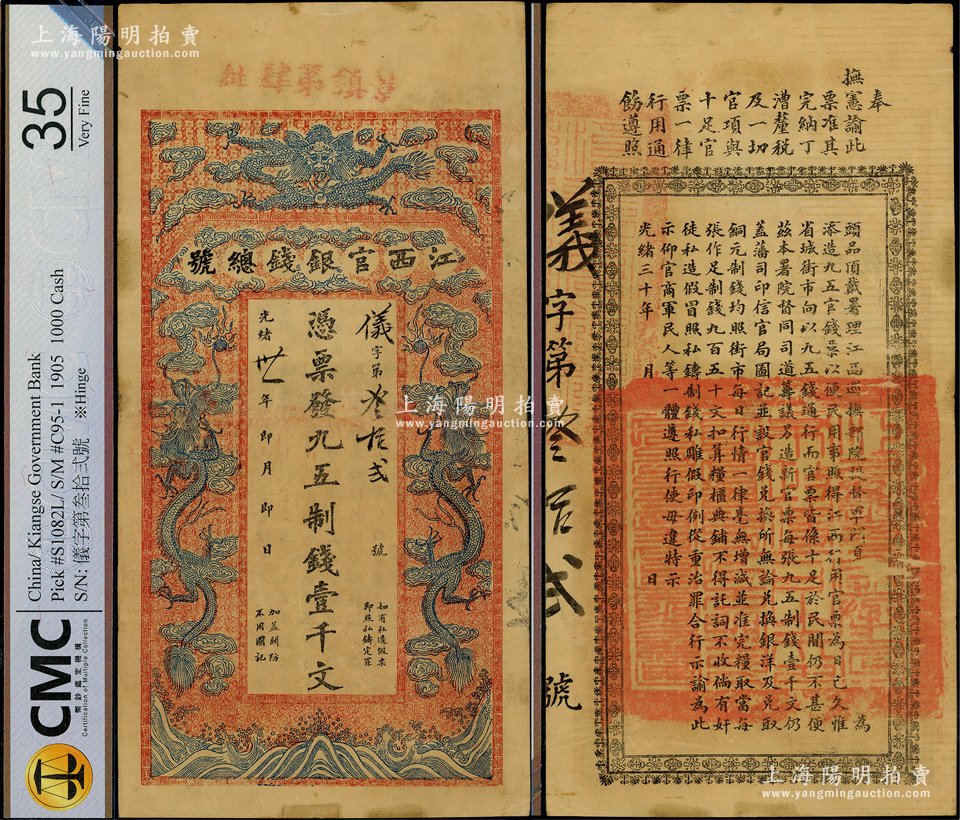 上海陽明拍賣
www.yangmingauction.com
CMC
幣鈔鑑定機構
Certification of Multiple Collection
China/ Kiangse Government Bank
Pick #S1082L/ S/M #C95-1 1905 1000 Cash
S/N: 儀字第叁拾弍號 ※Hinge
35
Very Fine
江西官銀錢總號
儀字第叁拾弍號
憑票發九五制錢壹千文
光緒卅年即月即日
如有私造假票
即照私鑄定罪
加蓋關防
不用圖記
上海陽明拍賣
www.yangmingauction.com
上海陽明拍賣
www.yangmingauction.com
奉
撫憲諭此
票准其
完納丁
漕釐稅
及一切
官項與
十足官
票一律
行用通
飭遵照
字第叁
號
為
頭品頂戴署理江西巡撫部院
添造九五官錢票以便民用事照得江西行用官票為日已久惟
省城街市向以九五錢通行而官票皆係十足於民間仍不甚便
茲本署院督同司道籌議另造新官票每張九五制錢壹千文仍
蓋藩司印信官局圖記並設官錢兌換所無論兌換銀洋及兌取
銅元制錢均照街市每日行情一律毫無增減並准完糧取當每
張作足制錢九百五十文扣算糧櫃典鋪不得託詞不收倘有奸
徒私造假冒照私鑄制錢私雕假印例從重治罪合行示諭為此
示仰官商軍民人等一體遵照行使毋違特示
光緒三十年 月 日
上海陽明拍賣
www.yangmingauction.com